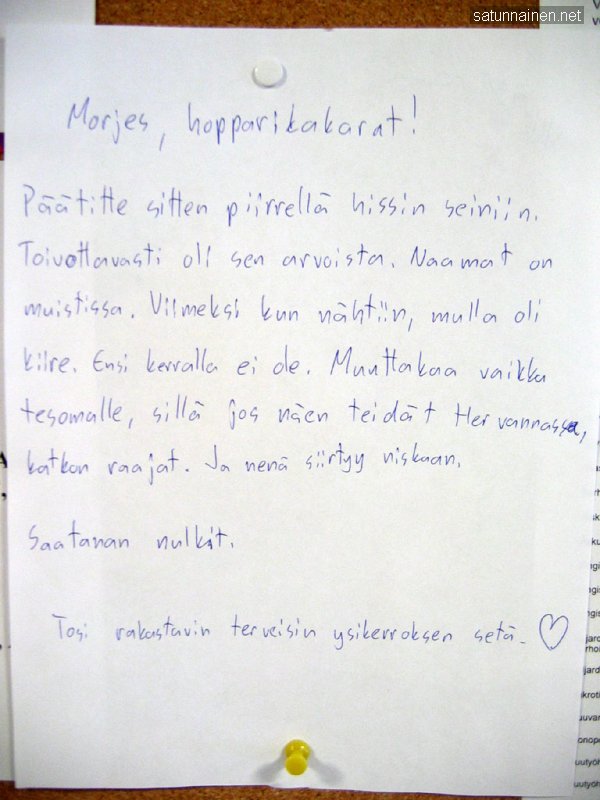 satunnainen.net
Morjes, hopparikakarat!
Päätitte sitten piirrellä hissin seiniin.
Toivottavasti oli sen arvoista. Naamat on
muistissa. Viimeksi kun nähtiin, mulla oli
kiire. Ensi kerralla ei ole. Muuttakaa vaikka
tesomalle, sillä jos näen teidät Hervannassa,
katkon raajat. Ja nenä siirtyy niskaan.
Saatanan nulkit.
Tosi rakastavin terveisin ysikerroksen setä. ♡